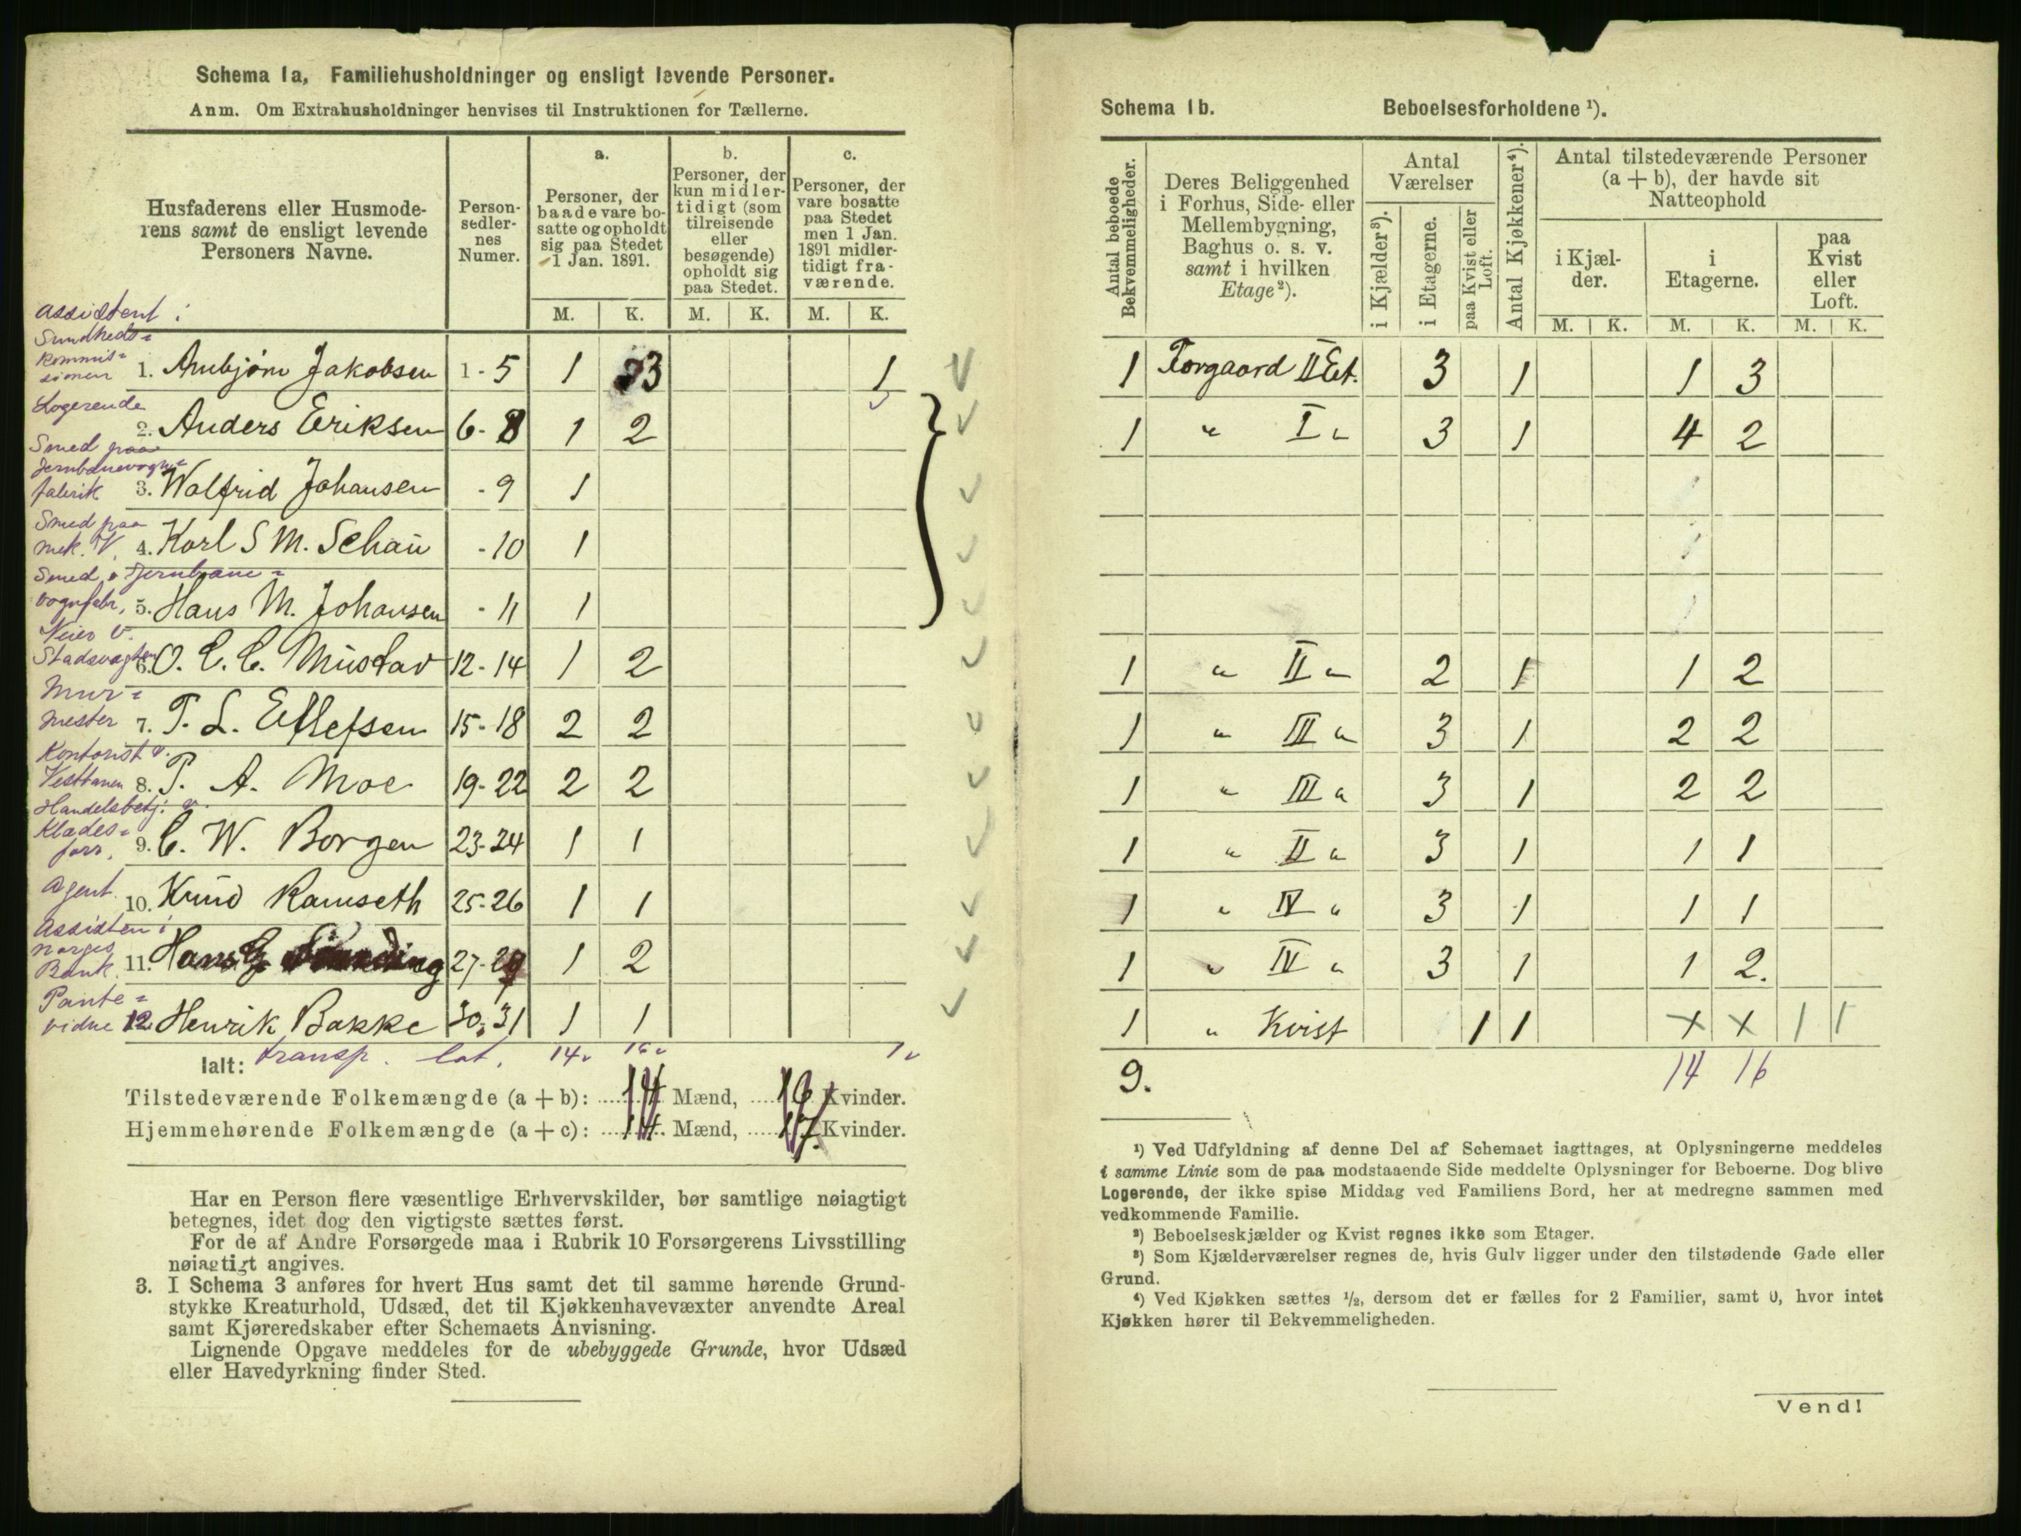 Schema 1a, Familiehusholdninger og ensligt levende Personer.
Anm. Om Extrahusholdninger henvises til Instruktionen for Tællerne.
Husfaderens eller Husmode-
rens samt de ensligt levende
Personers Navne.
Person-
sedler-
nes
Numer.
a.
Personer, der
baade vare bo-
satte og opholdt
sig paa Stedet
1 Jan. 1891.
b.
Personer, der
kun midler-
tidigt (som
tilreisende
eller
besøgende)
opholdt sig
paa Stedet.
c.
Personer, der
vare bosatte
paa Stedet
men 1 Jan.
1891 midler-
tidigt fra-
værende.
M. K. M. K. M. K.
Assistent i
Sundheds=
kommis=
sionen
1. Arnbjørn Jakobsen 1-5 1 3 1
Logerende
2. Anders Eriksen 6-8 1 2
Smed paa
Jernbanevogn=
fabrik
3. Wolfrid Johansen -9 1
Smed paa
mek. V.
4. Karl S M. Schau -10 1
Smed, Jernbane=
vognfabr,
5. Hans M. Johansen -11 1
Veier v.
Stadsvagten
6. O. E. C. Mustav 12-14 1 2
Mur=
mester
7. T. L. Ellefsen 15-18 2 2
Kontorist v.
8. T. A. Moe 19-22 2 2
Handelsbetj. v.
Klædes=
forr.
9. C. W. Borgen 23-24 1 1
Agent.
10. Knud Ramseth 25-26 1 1
Assisten i
Norges
Bank.
11. Hans 27-29 1 2
Pante=
vidne
12. Henrik Bakke 30-31 1 1
Ialt: transp. lat. 14 16 1
Tilstedeværende Folkemængde (a + b): 14 Mænd, 16 Kvinder.
Hjemmehørende Folkemængde (a + c): 14 Mænd, 17 Kvinder.
Har en Person flere væsentlige Erhvervskilder, bør samtlige nøiagtigt
betegnes, idet dog den vigtigste sættes først.
For de af Andre Forsørgede maa i Rubrik 10 Forsørgerens Livsstilling
nøiagtigt angives.
3. I Schema 3 anføres for hvert Hus samt det til samme hørende Grund-
stykke Kreaturhold, Udsæd, det til Kjøkkenhavevæxter anvendte Areal
samt Kjøreredskaber efter Schemaets Anvisning.
Lignende Opgave meddeles for de ubebyggede Grunde, hvor Udsæd
eller Havedyrkning finder Sted.
Schema 1b. Beboelsesforholdene ¹).
Antal beboede
Bekvemmeligheder.
Deres Beliggenhed
i Forhus, Side- eller
Mellembygning,
Baghus o. s. v.
samt i hvilken
Etage²).
Antal
Værelser
i Kjælder³).
i Etagerne.
paa Kvist eller
Loft.
Antal Kjøkkener⁴).
Antal tilstedeværende Personer
(a + b), der havde sit
Natteophold
i Kjæl-
der.
i
Etagerne.
paa
Kvist
eller
Loft.
M. K. M. K. M. K.
1 Forgaard II Et. 3 1 1 3
1 " I " 3 1 4 2
1 " II " 2 1 1 2
1 " III " 3 1 2 2
1 " III " 3 1 2 2
1 " II " 3 1 1 1
1 " IV " 3 1 1 1
1 " IV " 3 1 1 2.
1 " Kvist 1 1 x x 1 1
9. 14 16
¹) Ved Udfyldning af denne Del af Schemaet iagttages, at Oplysningerne meddeles
i samme Linie som de paa modstaaende Side meddelte Oplysninger for Beboerne. Dog blive
Logerende, der ikke spise Middag ved Familiens Bord, her at medregne sammen med
vedkommende Familie.
²) Beboelseskjælder og Kvist regnes ikke som Etager.
³) Som Kjælderværelser regnes de, hvis Gulv ligger under den tilstødende Gade eller
Grund.
⁴) Ved Kjøkken sættes ½, dersom det er fælles for 2 Familier, samt 0, hvor intet
Kjøkken hører til Bekvemmeligheden.
Vend!